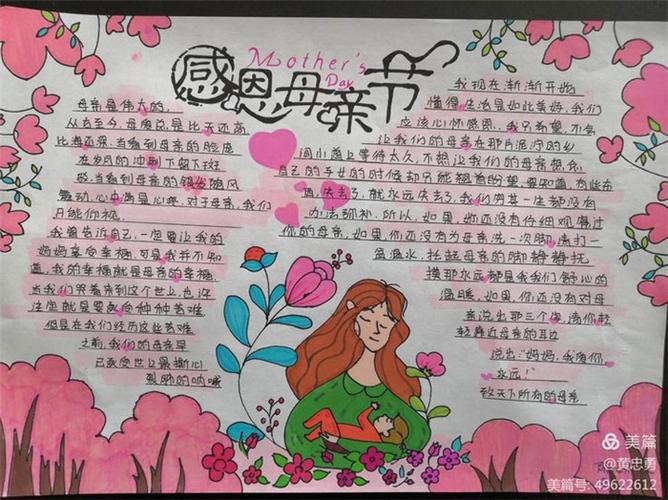 Mother's
Day
感恩母亲节
母亲是伟大的,
从古至今,母爱总是比天还高,
比海还深,当看到母亲的脸庞
在岁月的冲刷下留下斑
驳,当看到母亲的银发随风
飘动,心中满是心疼,对于母亲,我们
只能仰视,
我曾告诉自己,一定要让我的
妈妈享受幸福,可是我并不知
道,我的幸福就是母亲的幸福,
当我们哭着来到这个世上,也许
注定就是要受种种苦难
但是在我们经历这些苦难
之前,我们的母亲早
已承受世上最撕心
裂肺的呐喊
我现在渐渐开始
懂得生活是如此美好,我们
应该心怀感恩,我只希望,不会
让我们的母亲在那片泥泞的乡
间小道上等待太久,不想让我们的母亲想念
自己的子女的时候却只能翘首盼望,要知道,有些东
西,失去了,就永远失去了,我们用其一生都没有
办法弥补,所以,如果,你还没有仔细观看过
你的母亲,如果,你还没有为母亲洗一次脚,请打一
盆温水,托起母亲的脚静静抚
摸那永远都是我们舒心的
温暖,如果,你还没有对母
亲说出那三个字,请你轻
轻靠近母亲的耳边
说出:"妈妈,我爱你,
永远!"
致天下所有的母亲
美篇
@黄忠勇
美篇号:49622612